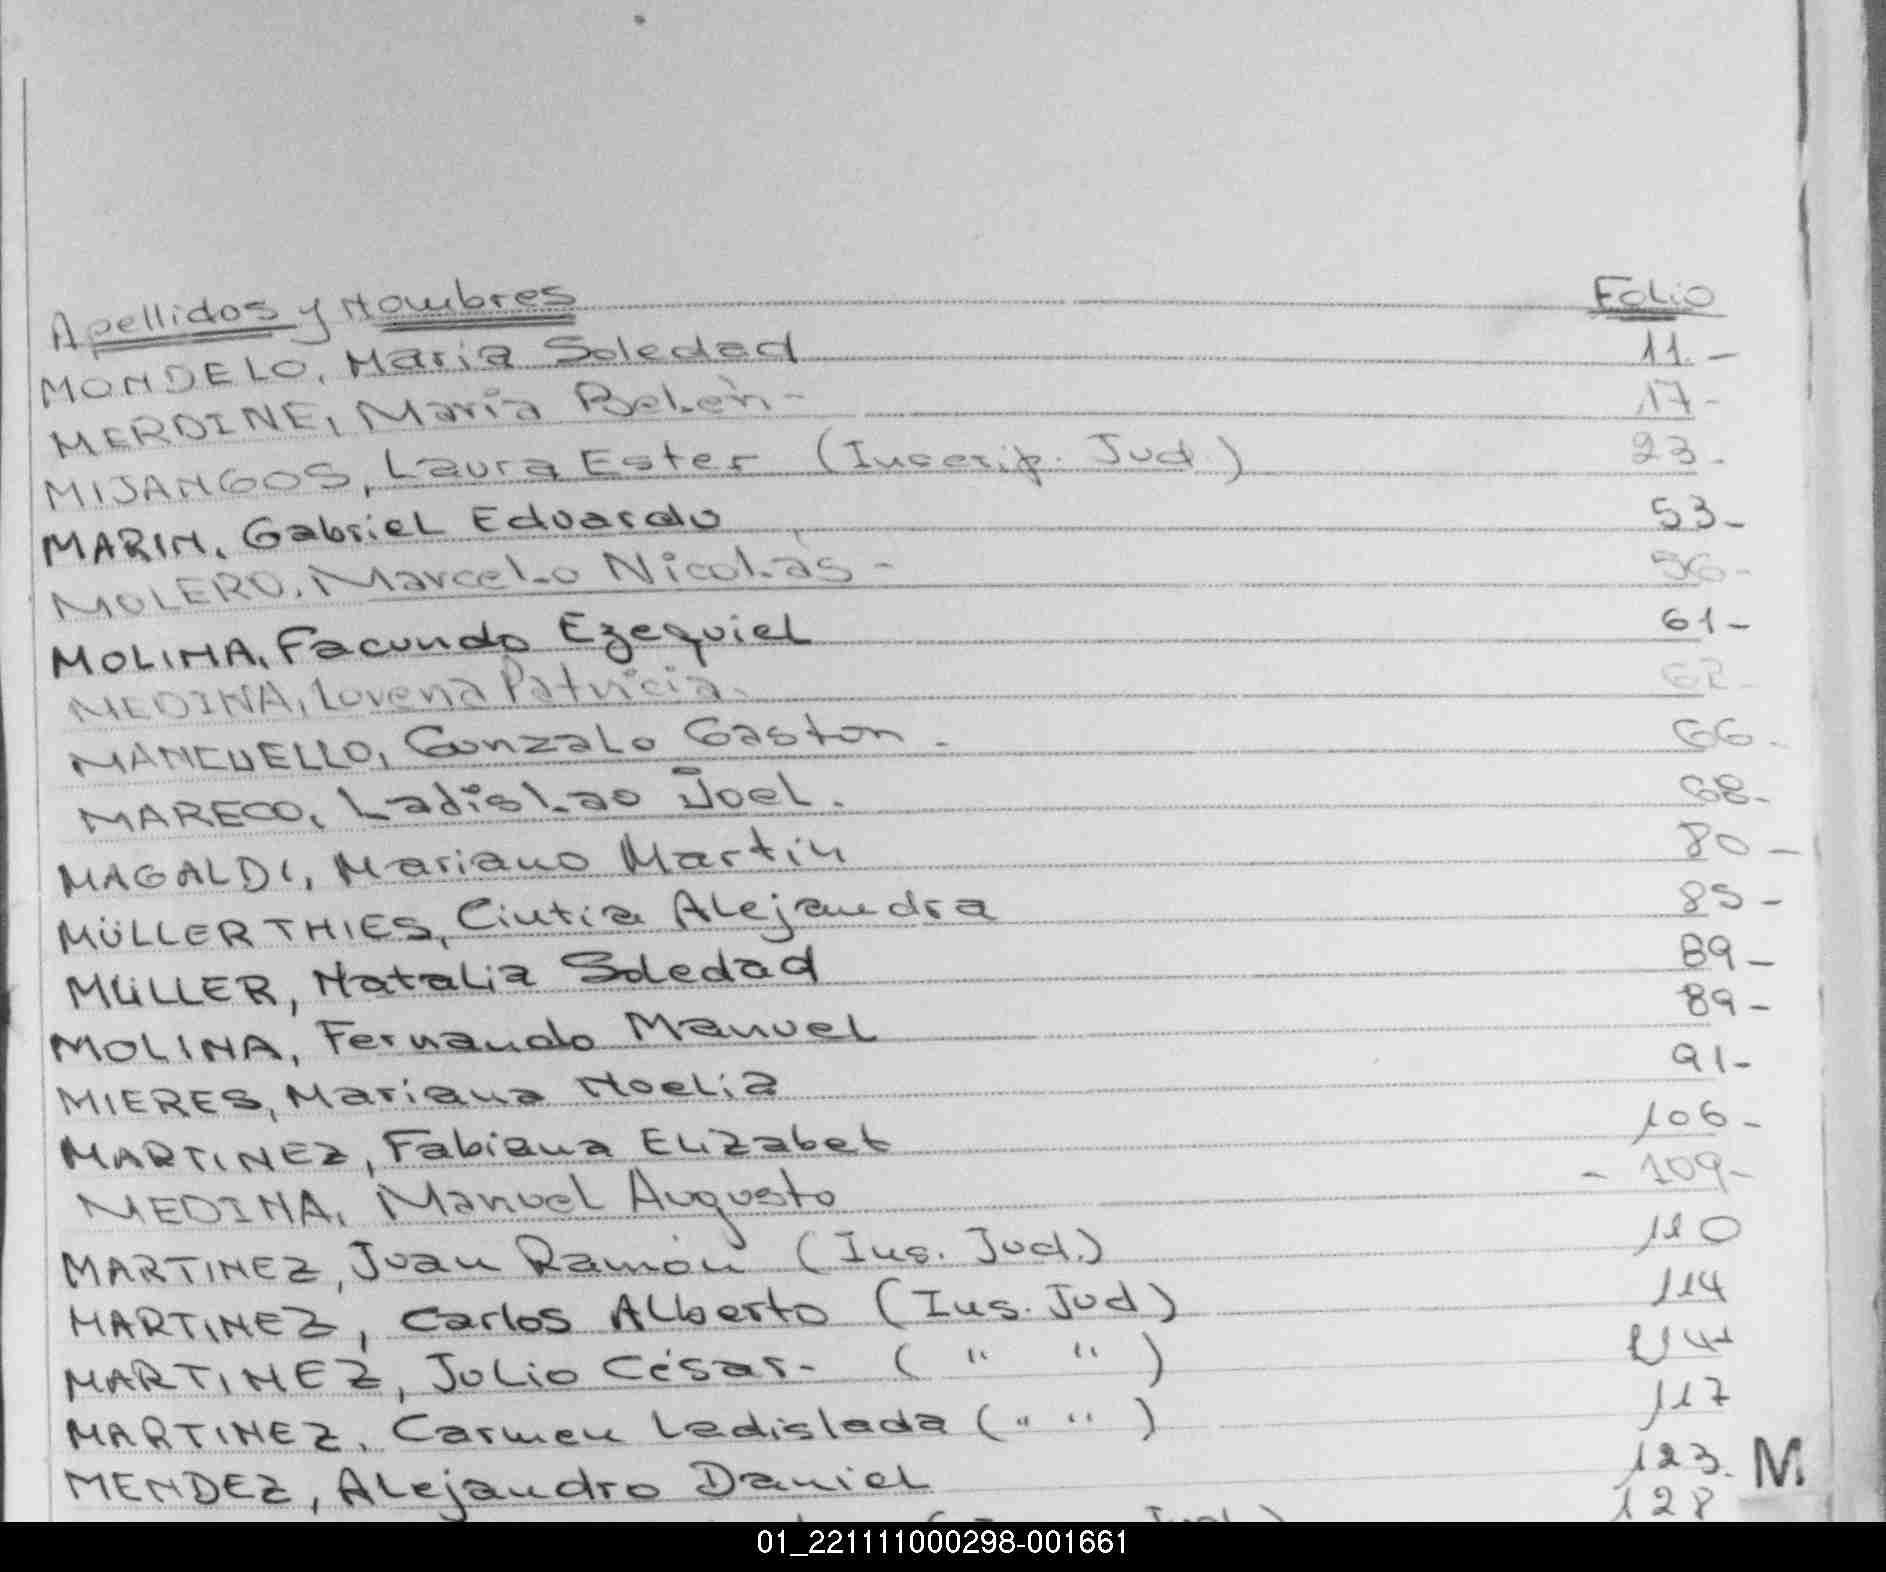 Apellidos y Nombres Folio
MONDELO, Maria Soledad 11.-
MERDINE, Maria Belén- 17-
MIJANGOS, Laura Ester (Inscrip. Jud.) 23.
MARIN, Gabriel Eduardo 53-
MOLERO, Marcelo Nicolás- 56-
MOLINA, Facundo Ezequiel 61-
MEDINA, Lorena Patricia. 62-
MANCUELLO, Gonzalo Gaston.- 66.
MARECO, Ladislao Joel. 68-
MAGALDI, Mariano Martín 80-
MÜLLER THIES, Cintia Alejandra 85-
MÜLLER, Natalia Soledad 89-
MOLINA, Fernando Manuel 89-
MIERES, Mariana Noelia 91-
MARTINEZ, Fabiana Elizabet 106-
MEDINA, Manuel Augusto - 109-
MARTINEZ, Juan Ramón (Ins. Jud.) 110
MARTINEZ, Carlos Alberto (Ins. Jud) 114
MARTINEZ, Julio César- ( " " )
MARTINEZ, Carmen Ladislada ( " " ) 117
MENDEZ, Alejandro Daniel 123. M.
128
01_221111000298-001661